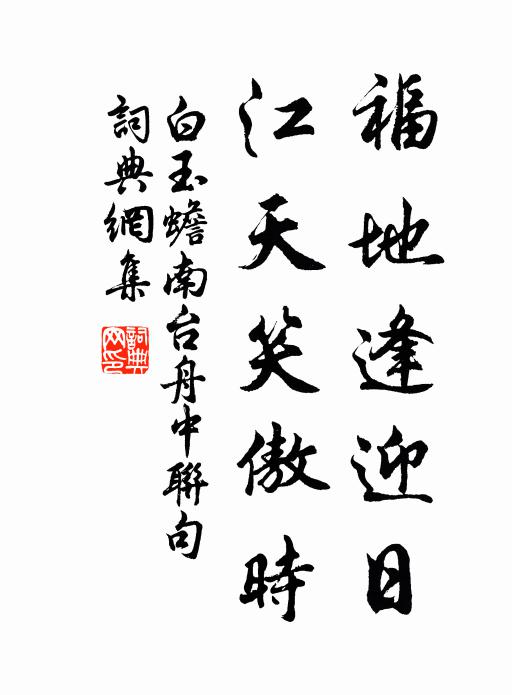 福地逢迎日
江天笑傲時
白玉蟾南台舟中聯句
詞典網集
詞典
网印